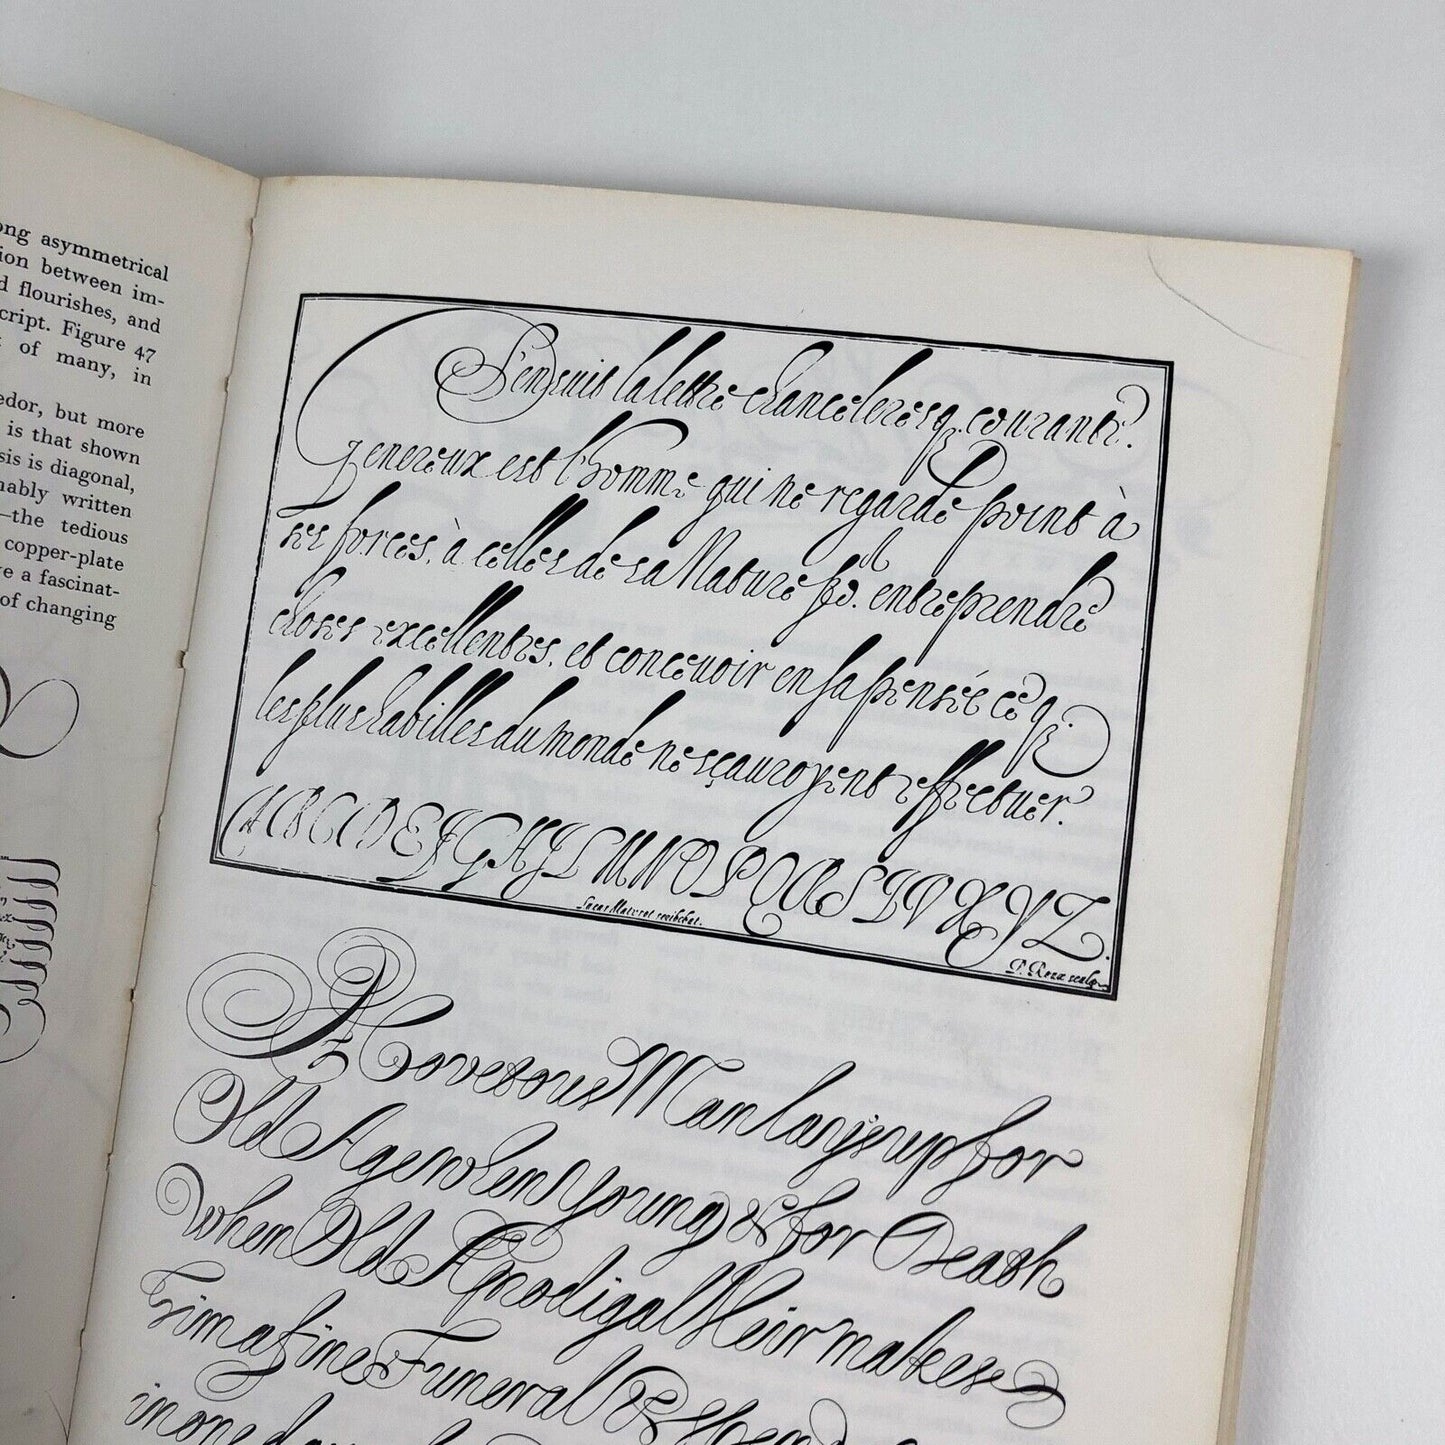 ong asymmetrical
ion between im-
d flourishes, and
cript. Figure 47
of many, in
edor, but more
is that shown
sis is diagonal,
nably written
—the tedious
copper-plate
ve a fascinat-
of changing
S'ensuit la lettre chanceleresq. courante.
Genereux est l'homme qui ne regarde point à
ses forces, à celles de sa Nature pō. entreprendre
choses excellentes, et concevoir en sa pensée ce q.
les plus habilles du monde ne sçauroyent effectuer.
A B C D E F G H J L M N O P Q R S T V X Y Z.
Lucas Materot scribebat.
P. Roux sculp.
A Covetous Man lays up for
Old Age when Young & for Death
when Old A prodigal Heir makes
him a fine Funeral &
in one day